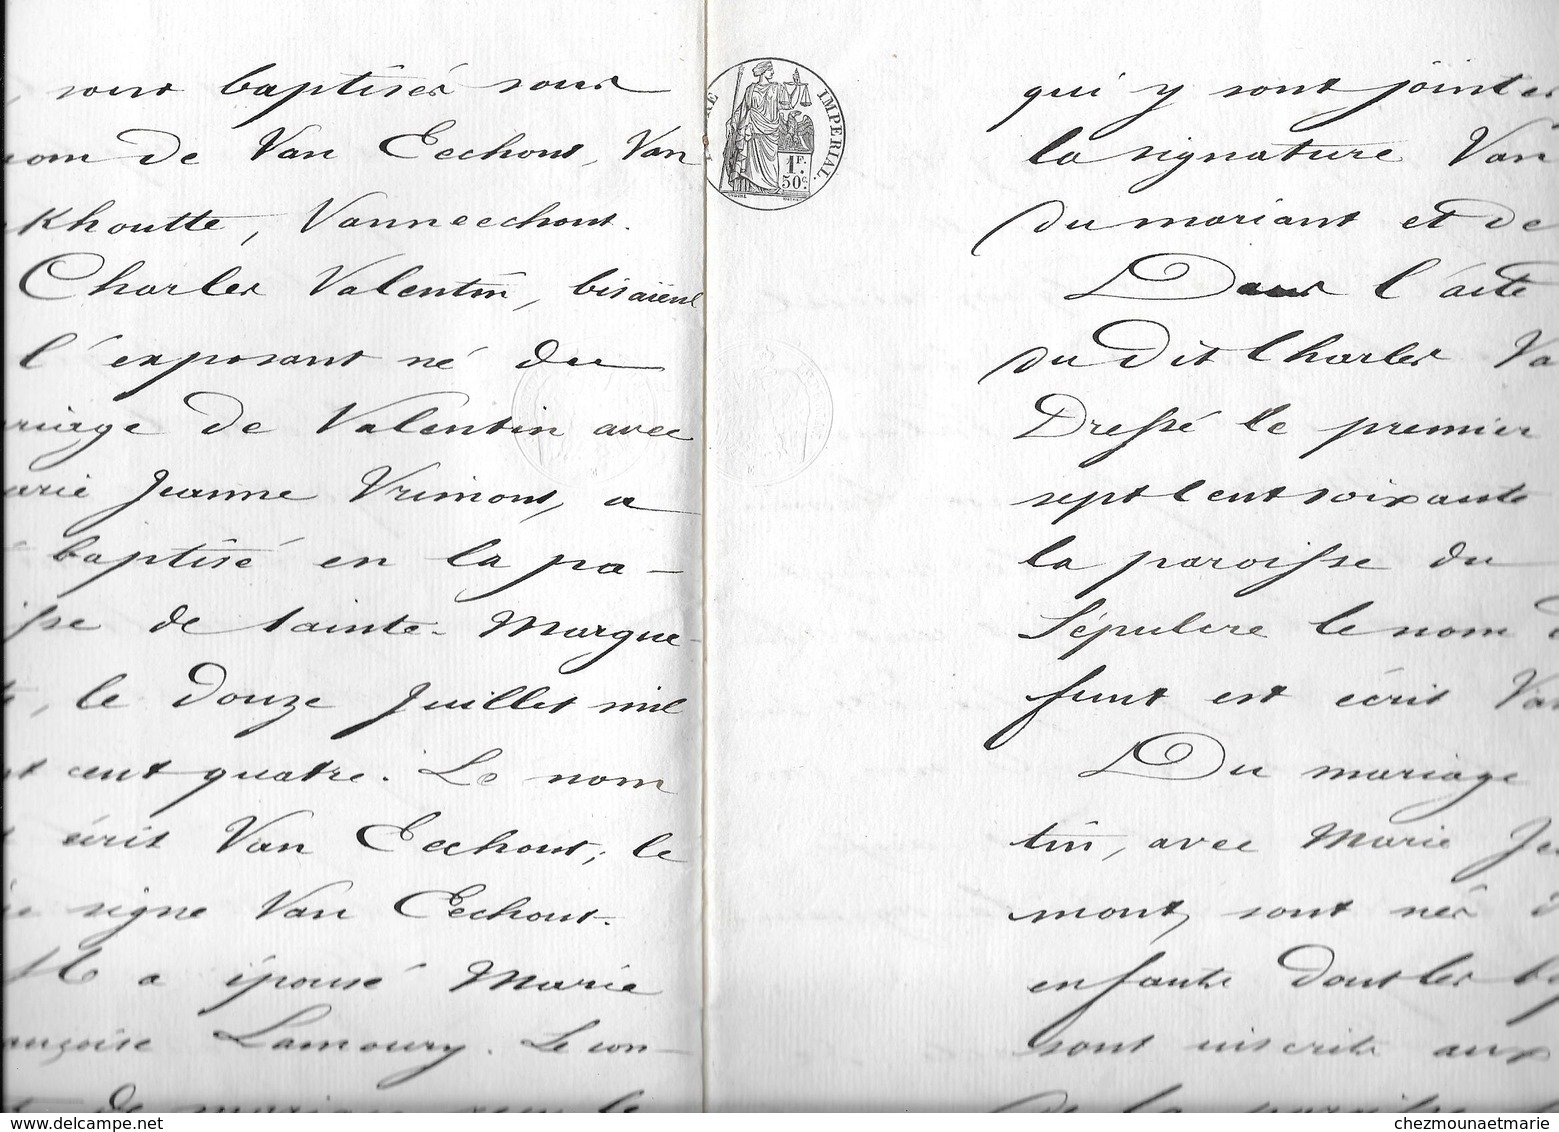 sont baptisés sous
nom de Van Eechout, Van
khoutte, Vanneechout.
Charles Valentin, bisaïeul
l'exposant né du
riage de Valentin avec
arie Jeanne Vrimont, a
baptisé en la pa-
sse de Sainte-Margue-
, le douze Juillet mil
cent quatre. Le nom
écrit Van Eechout; le
signe Van Eechout.
Il a épousé Marie
ançoise Lamoury. Le con-
de mariage
RE IMPERIAL.
1F. 50c.
qui y sont jointes
la signature Van
du mariant et de
Dans l'acte
du dit Charles Va
Dressé le premier
sept cent soixante
la paroisse du
Sépulcre le nom d
funt est écrit Van
Du mariage
tin, avec Marie Je
mont, sont nés d
enfants dont les
sont inscrits aux
de la paroisse
chezmounaetmarie